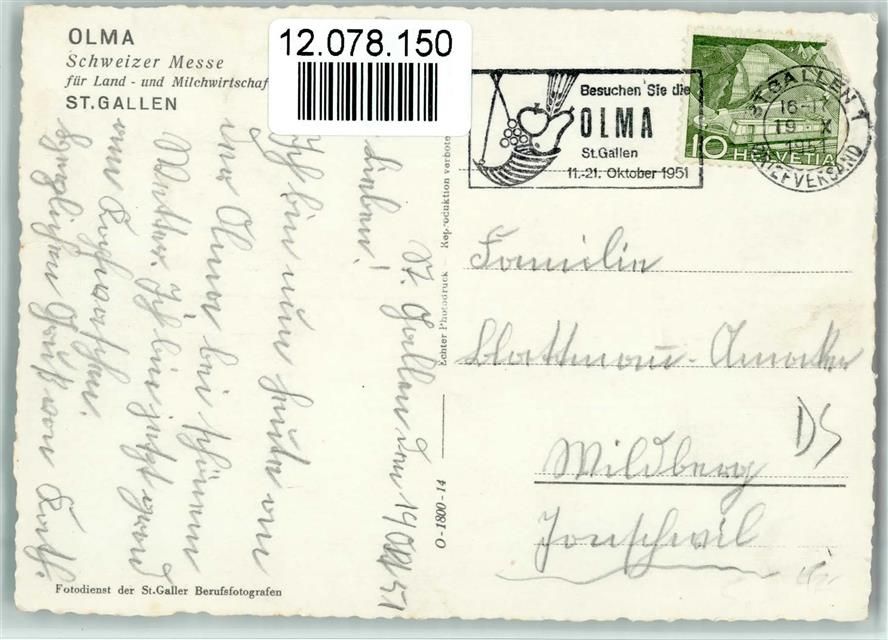 OLMA
Schweizer Messe
für Land - und Milchwirtschaf
ST. GALLEN
12.078.150
Besuchen Sie die
OLMA
St.Gallen
11.-21. Oktober 1951
ST. GALLEN 1
16-17
19. X
1951
BRIEFVERSAND
10 HELVETIA
St. Gallen den 19 Okt 51
Lieben!
Ich bin nun heute an
der Olma bei schönem
Wetter. Ich bin jetzt grad
am
Herzlichen Gruß von
Familie
Blattmann-Amacker
Wildberg
Jonschwil
DS
Echter Photodruck - Reproduktion verbote
O-1800-14
Fotodienst der St.Galler Berufsfotografen